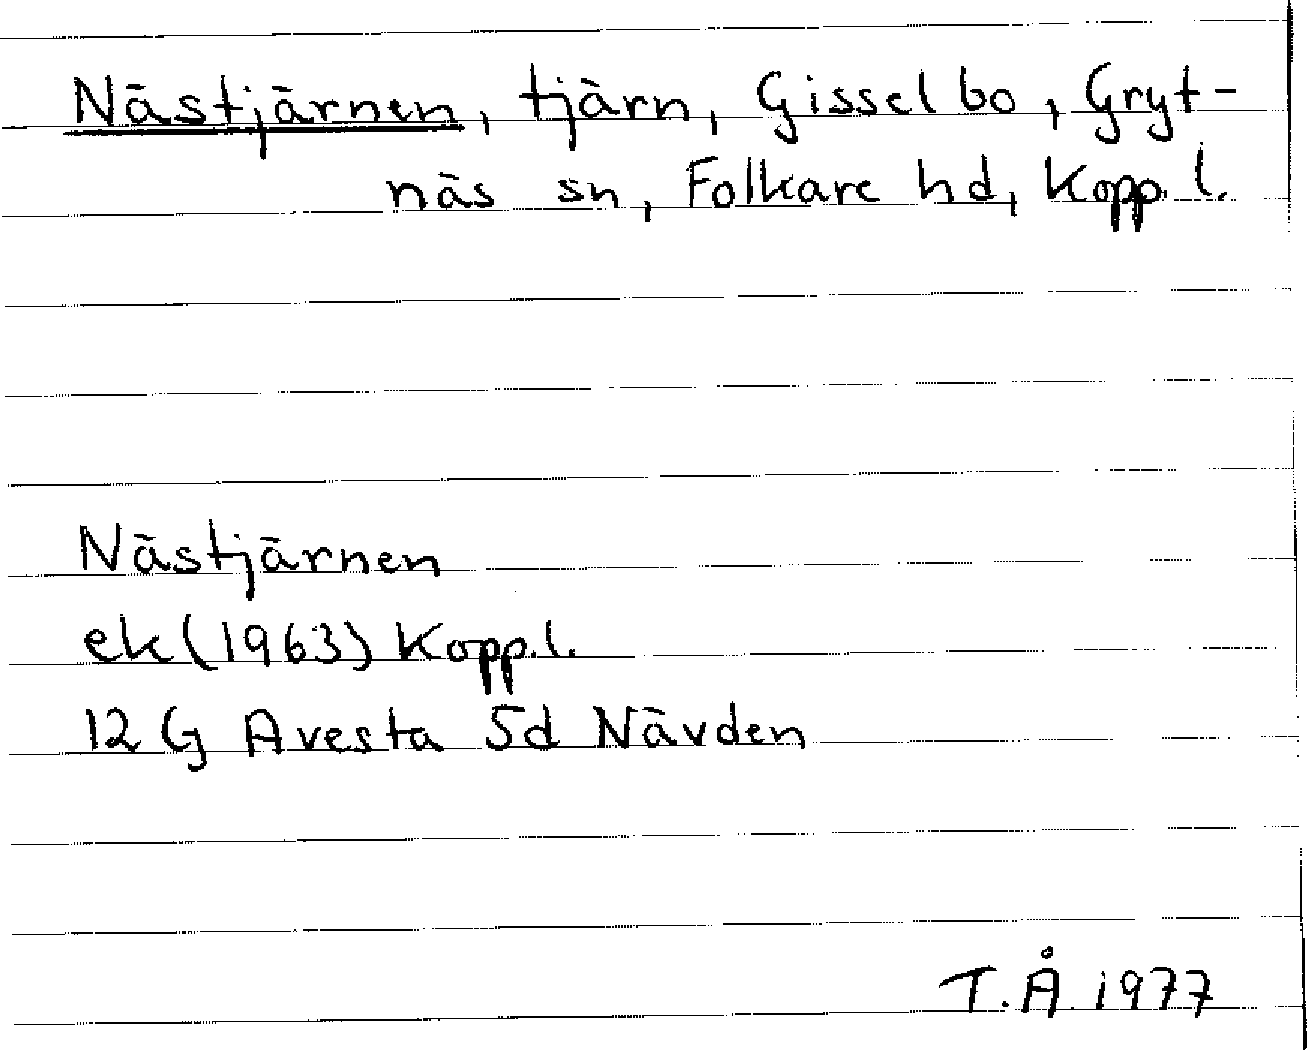 Nästjärnen, tjärn, Gisselbo, Gryt-
näs sn, Folkare hd, Kopp. l.
Nästjärnen
ek (1963) Kopp. l.
12 G Avesta 5d Nävden
T. Å. 1977